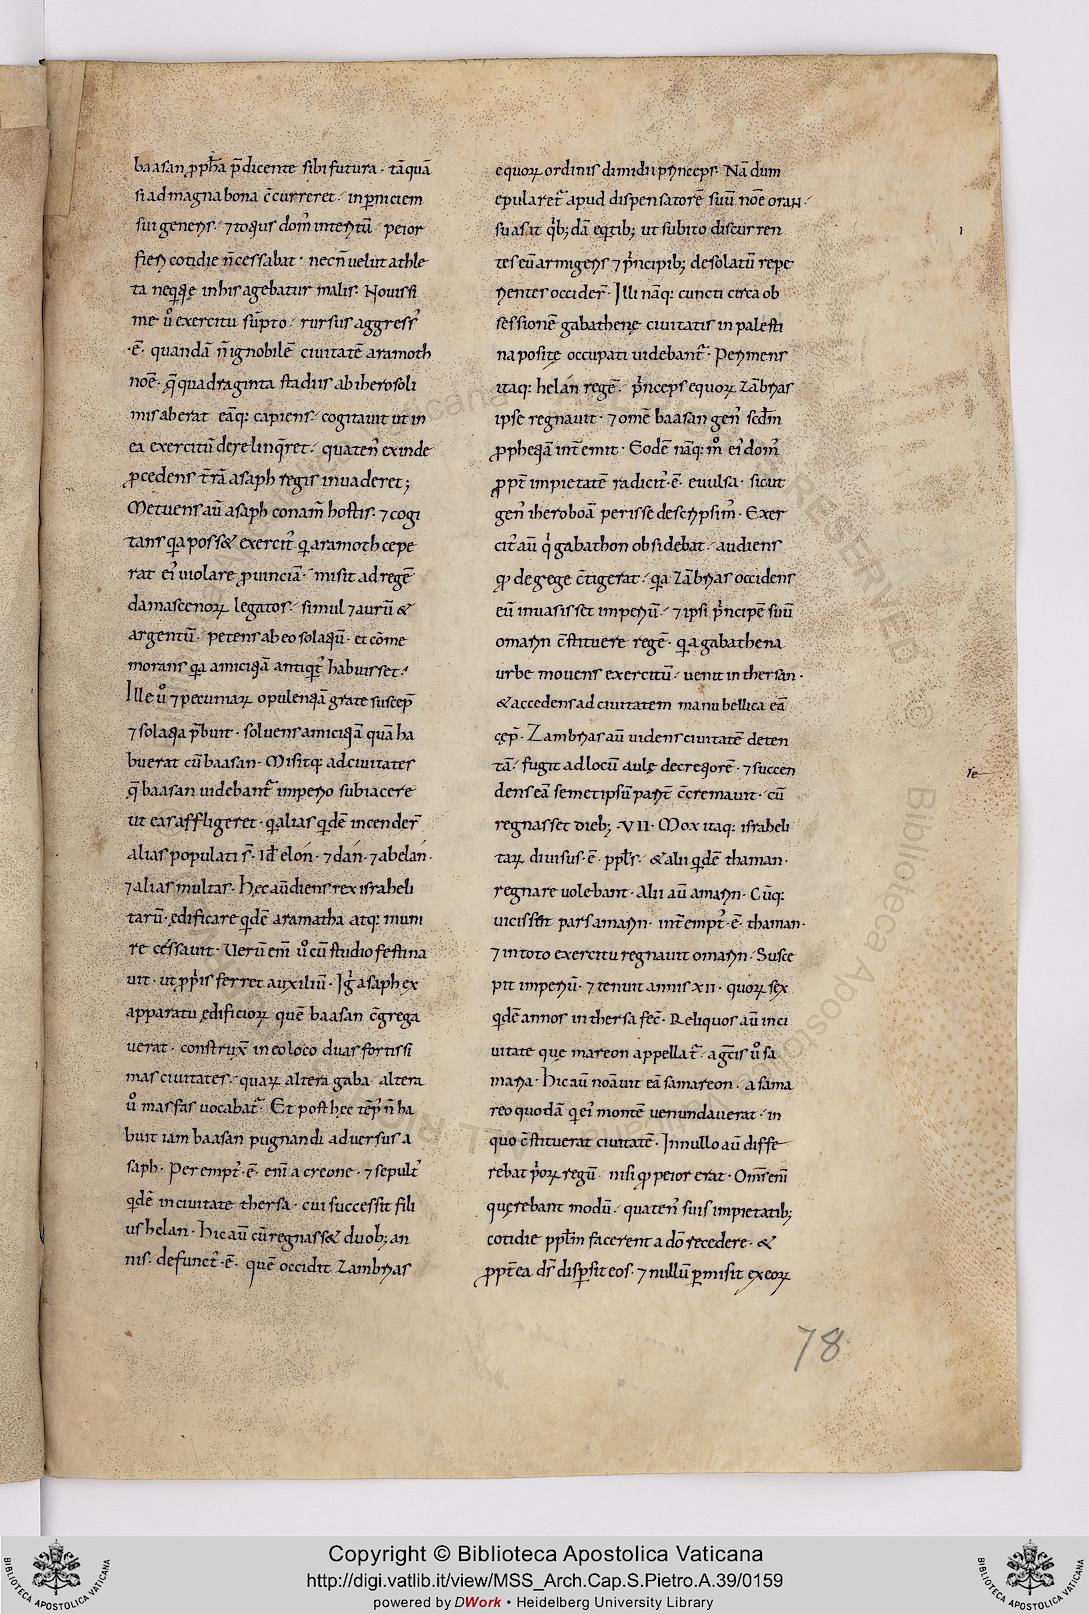 baasan ꝓph̄a p̄dicente sibi futura · tāquā
si ad magna bona c̄curreret · in ꝑniciem
sui generis · ⁊ totius dom᷒ interitū · peior
fieri cotidie n̄ cessabat · nec n̄ velut athle
ta neq̄tię in his agebatur malis · Nouissi
me ů exercitu sūpto · rursus aggress᷒
·ē· quandā n̄ ignobilē ciuitatē aramoth
noē · q̄ quadraginta stadiis ab iherosoli
mis aberat eāq: capiens · cogitauit ut in
ea exercitū derelinq̄ret · quaten᷒ exinde
ꝓcedens t̄rā asaph regis inuaderet;
Metuens aū asaph conam̄ hostis · ⁊ cogi
tans qa poss& exercit᷒ qi aramoth cepe
rat ei᷒ uiolare ꝓuinciā · misit ad regē
damascenoꝝ legatos · simul ⁊ aurū &
argentū · petens ab eo solatiū · et cōme
morans qa amicitiā antiqit᷒ habuisset ·
Ille ů ⁊ pecuniaꝝ opulentiā grate suscep̄
⁊ solatia p̄buit · soluens amicitiā quā ha
buerat cū baasan · Misitq: ad ciuitates
q̄ baasan uidebant᷒ imperio subiacere
ut eas affligeret · qi alias qidē incender̄
alias populati s̄ · Id ē elón · ⁊ dán · ⁊ abelán ·
⁊ alias multas · Hęc audiens rex israheli
tarū · ędificare qidē aramatha atq: muni
re cessauit · Verū em̄ ů cū studio festina
uit · ut ꝓp̄is ferret auxiliū · Igi asaph ex
apparatu ędificioꝝ quē baasan c̄grega
uerat · construx̄ in eo loco duas fortissi
mas ciuitates · quaꝝ altera gaba altera
ů masfas vocabat᷒ · Et post hec tēp᷒ n̄ ha
buit iam baasan pugnandi aduersus a
saph · Perempt᷒ ·ē· em̄ a creone · ⁊ sepult᷒
qidē in ciuitate thersa · cui successit fili
us helan · Hic aū cū regnass& duob; an
nis · defunct᷒ ·ē· quē occidit Zambrias
equoꝝ ordinis dimidii princeps · Nā dum
epularet᷒ apud dispensatorē suū noē oran ·
suasit qib;dā eqitib; ut subito discurren
tes eū armigeris ⁊ p̄ncipib; desolatū repe
rientes occider̄ · Illi nāq: cuncti circa ob
sessionē gabathenę ciuitatis in palesti
na positę occupati uidebant᷒ · Perimens
itaq: helán regē · p̄nceps equoꝝ zābrias
ipse regnauit · ⁊ omē baasan gen᷒ scd̄m
ꝓphetiā int̄emit · Eodē nāq: m̊ ei᷒ dom᷒
ꝓpt̄ impietatē radicit᷒ ·ē· euulsa · sicut
gen᷒ iheroboā perisse descripsim᷒ · Exer
cit᷒ aū qi gabathon obsidebat · audiens
qđ de rege c̄tigerat · qa zābrias occidens
eū inuasisset imperiū · ⁊ ipsi p̄ncipē suū
omarin c̄stituere regē · qi a gabathena
urbe mouens exercitū · uenit in thersan ·
& accedens ad ciuitatem manu bellica eā
cęp̄ · Zambrias aū uidens ciuitatē deten
tā · fugit ad locū aulę decretiorē · ⁊ succen
dens eā semetipsū parit᷒ c̄cremauit · cū
regnasset dieb; ·VII· Mox itaq: israheli
taꝝ diuisus ·ē· ppl̄s · & alii qidē thaman ·
regnare uolebant · Alii aū amarin · Cūq:
uicissēt pars amarin · int̄empt᷒ ·ē· thaman ·
⁊ in toto exercitu regnauit omarin · Susce
pit imperiū · ⁊ tenuit annis XII · quoꝝ sex
qidē annos in thersa fec̄ · Reliquos aū in ci
uitate que mareon appellat᷒ · a gr̄cis ů sa
maria · Hic aū noāuit eā samareon · a sama
reo quodā qi ei᷒ montē uenundauerat · in
quo c̄stituerat ciuitatē · In nullo aū diffe
rebat p̄oꝝ regū · nisi qđ peior erat · Om̄s em̄
quęrebant modū · quaten᷒ suis impietatib;
cotidie ppl̄m facerent a dō recedere · &
ꝓpt̄ea ds̄ disꝑsit eos · ⁊ nullū ꝑmisit ex eoꝝ
se
78
Copyright © Biblioteca Apostolica Vaticana
http://digi.vatlib.it/view/MSS_Arch.Cap.S.Pietro.A.39/0159
powered by DWork • Heidelberg University Library
BIBLIOTECA APOSTOLICA VATICANA
BIBLIOTECA APOSTOLICA VATICANA